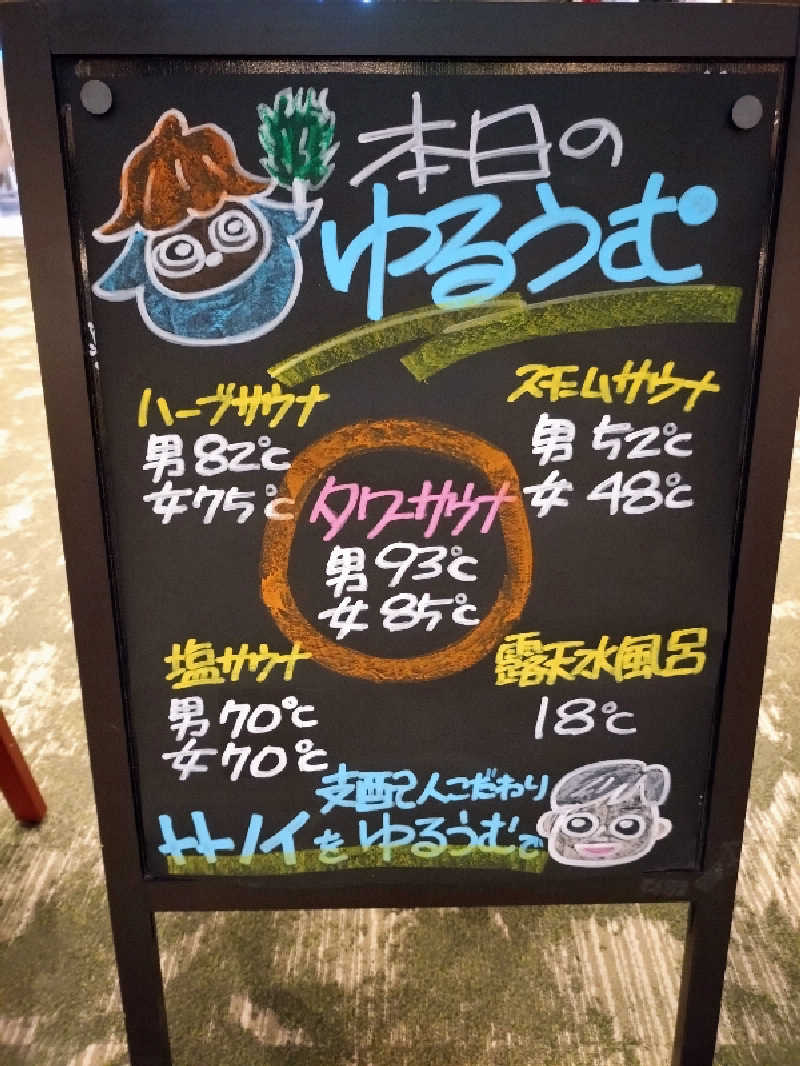 本日の
ゆるうむ
ハーブサウナ
男82℃
女75℃
スチームサウナ
男 52℃
女 48℃
タワーサウナ
男93℃
女 85℃
塩サウナ
男70℃
女70℃
露天水風呂
18℃
支配人こだわり
トトノイをゆるうむで